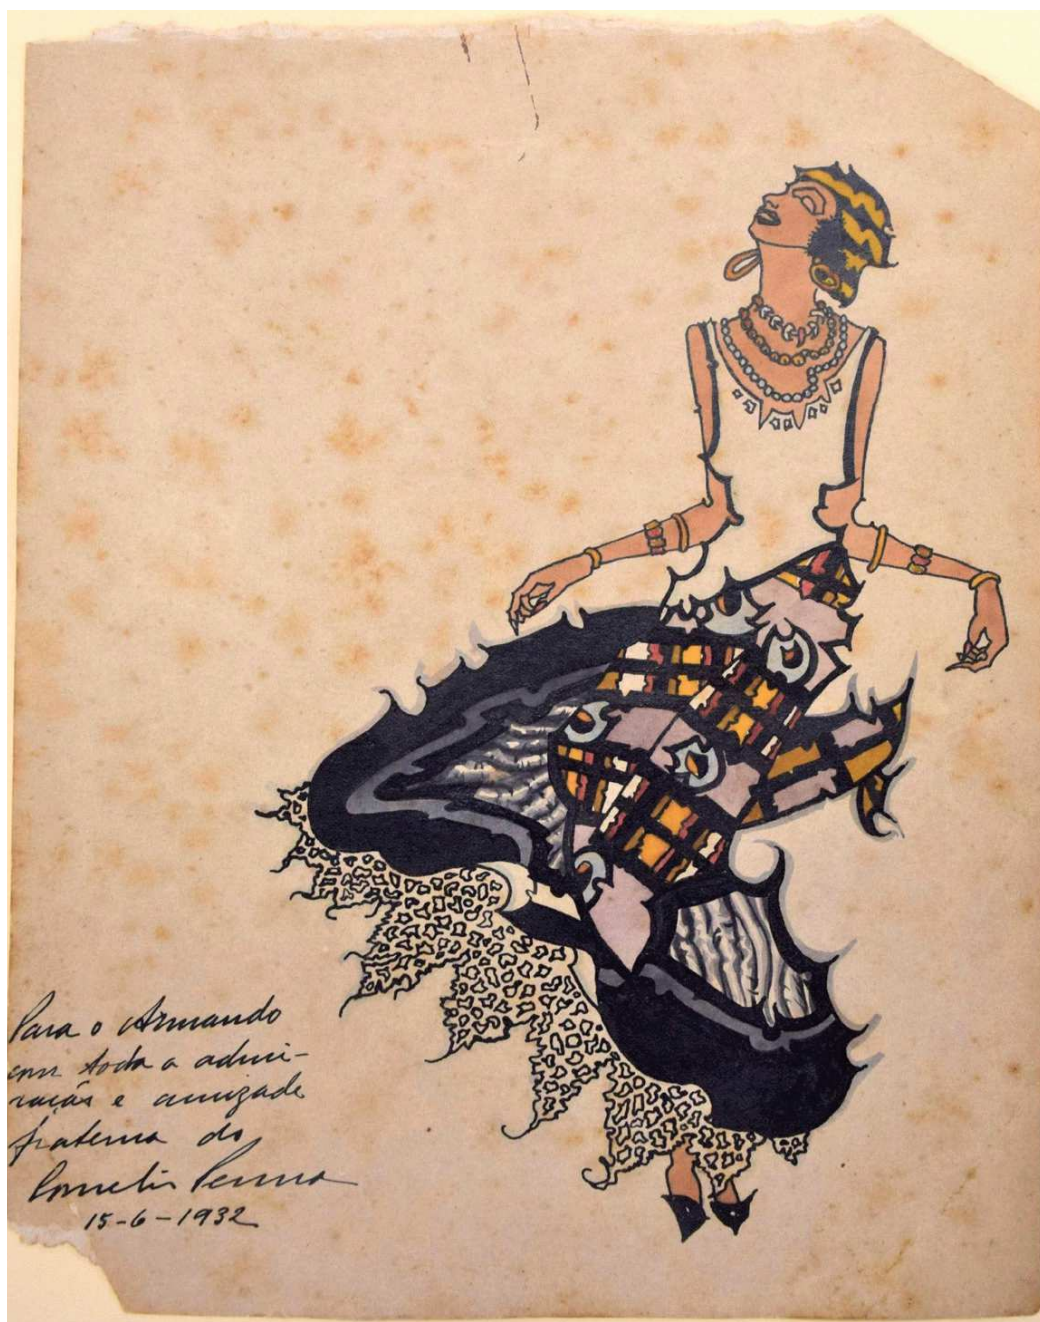 Para o Armando
com toda a admi-
ração e amizade
fraterna do
Cornelio Penna
15-6-1932